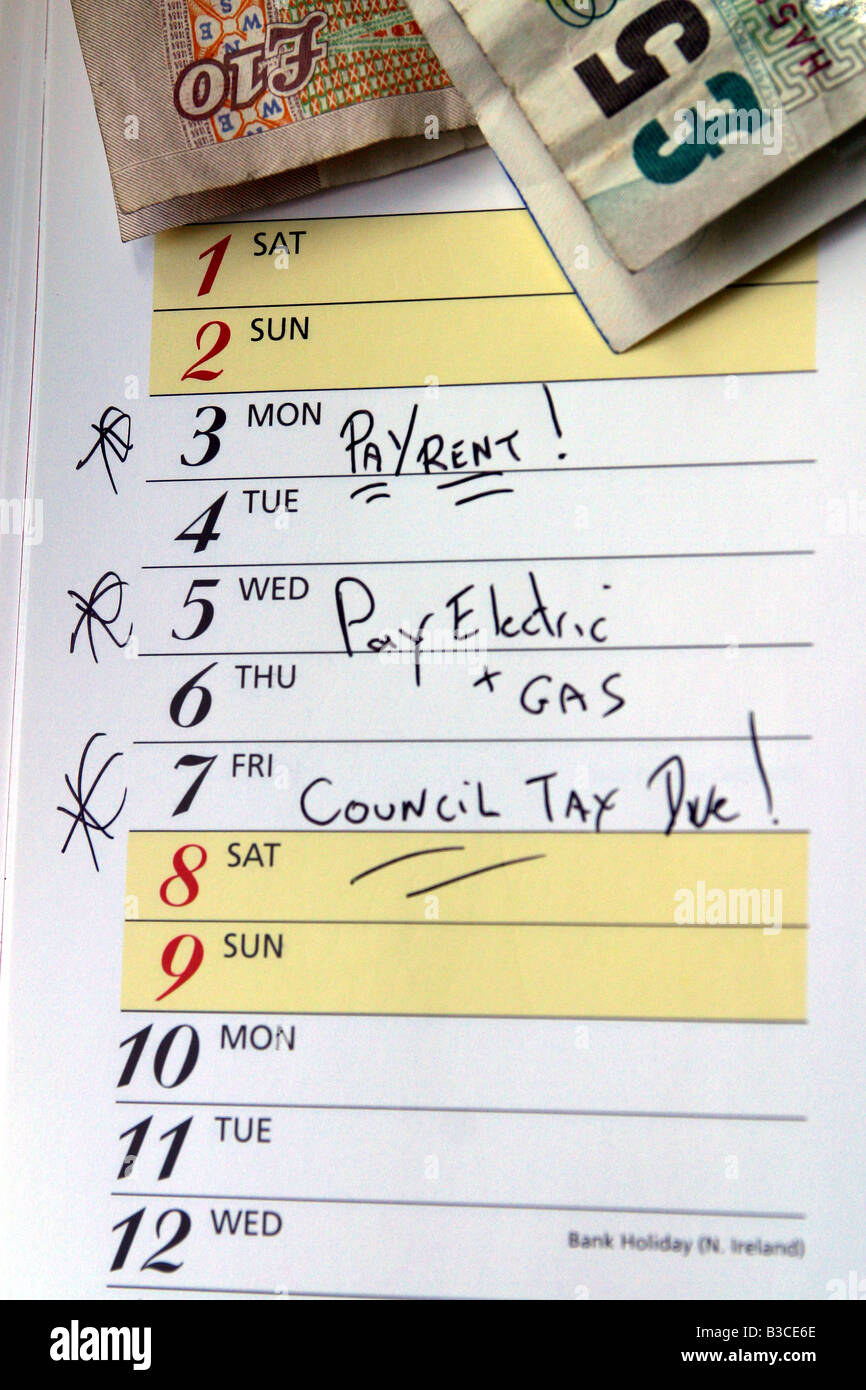 £10
£5
£5
HAS
1 SAT
2 SUN
3 MON PAY RENT!
4 TUE
5 WED Pay Electric
6 THU + GAS
7 FRI COUNCIL TAX DUE!
8 SAT
9 SUN
10 MON
11 TUE
12 WED
Bank Holiday (N. Ireland)
alamy
alamy
Image ID: B3CE6E
www.alamy.com